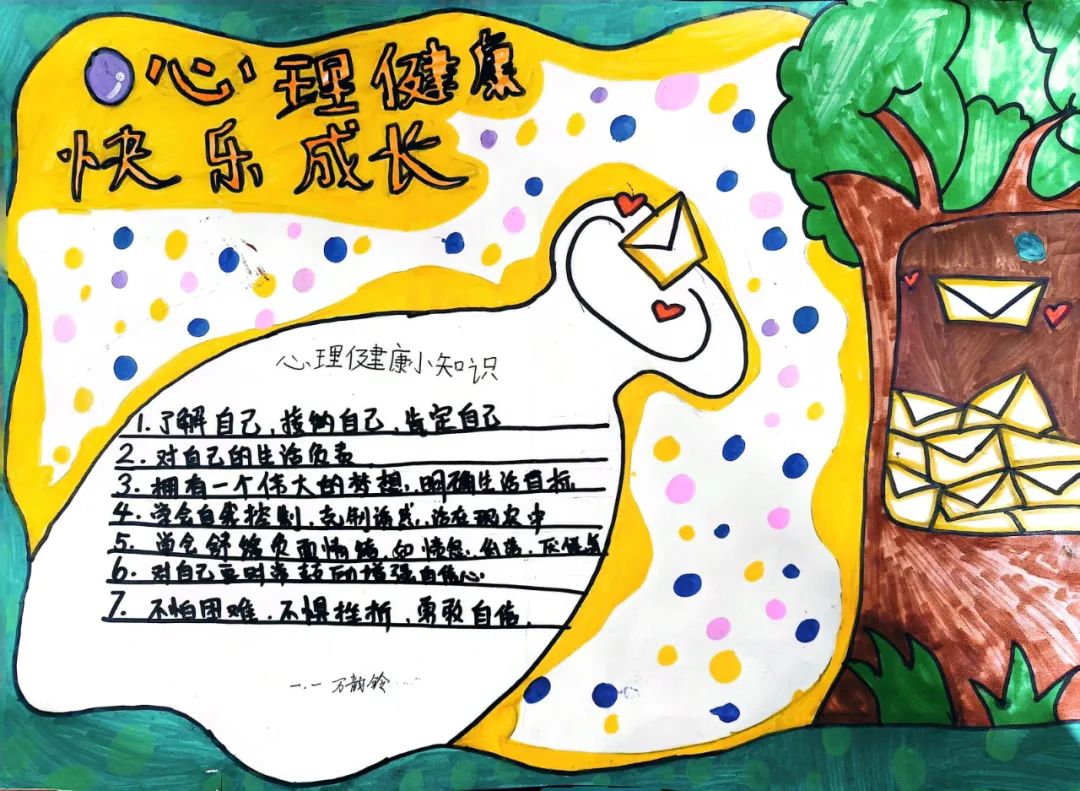 心理健康
快乐成长
心理健康小知识
1.了解自己,接纳自己,肯定自己
2.对自己的生活负责
3.拥有一个伟大的梦想,明确生活目标
4.学会自我控制,克制诱惑,活在现实中
5.学会舒缓负面情绪,如愤怒、
6.对自己要时常鼓励增强自信心.
7.不怕困难,不惧挫折,勇敢自信.
一.一 万韵铃